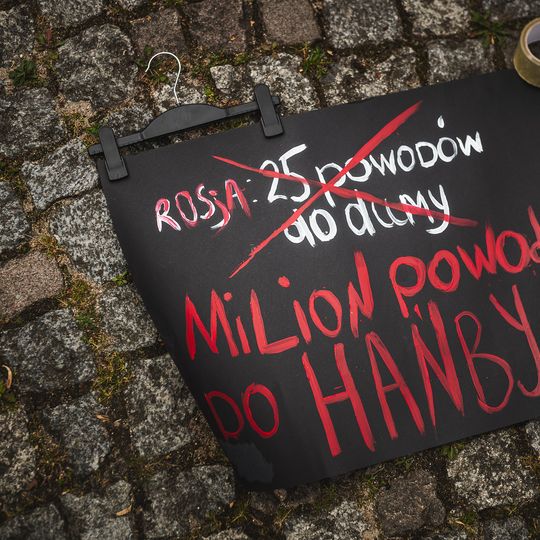 ROSJA: 25 powodów
do dumy
MiLioN powod
DO HAŃBY